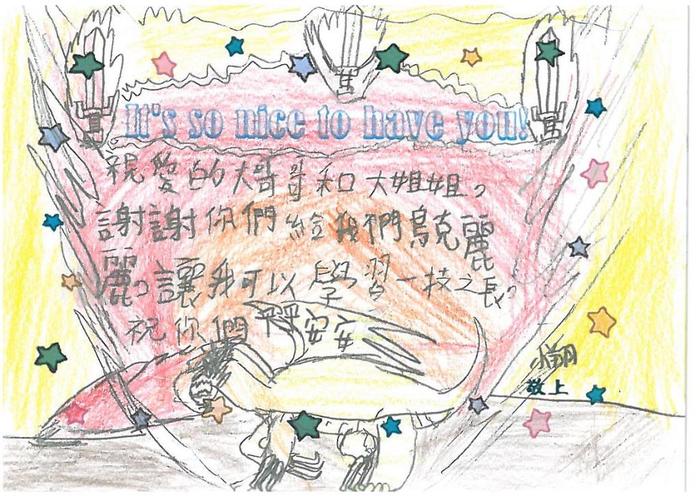 It's so nice to have you!
親愛的大哥哥和大姐姐。
謝謝你們給我們烏克麗
麗。讓我可以學習一技之長。
祝你們平平安安
敬上